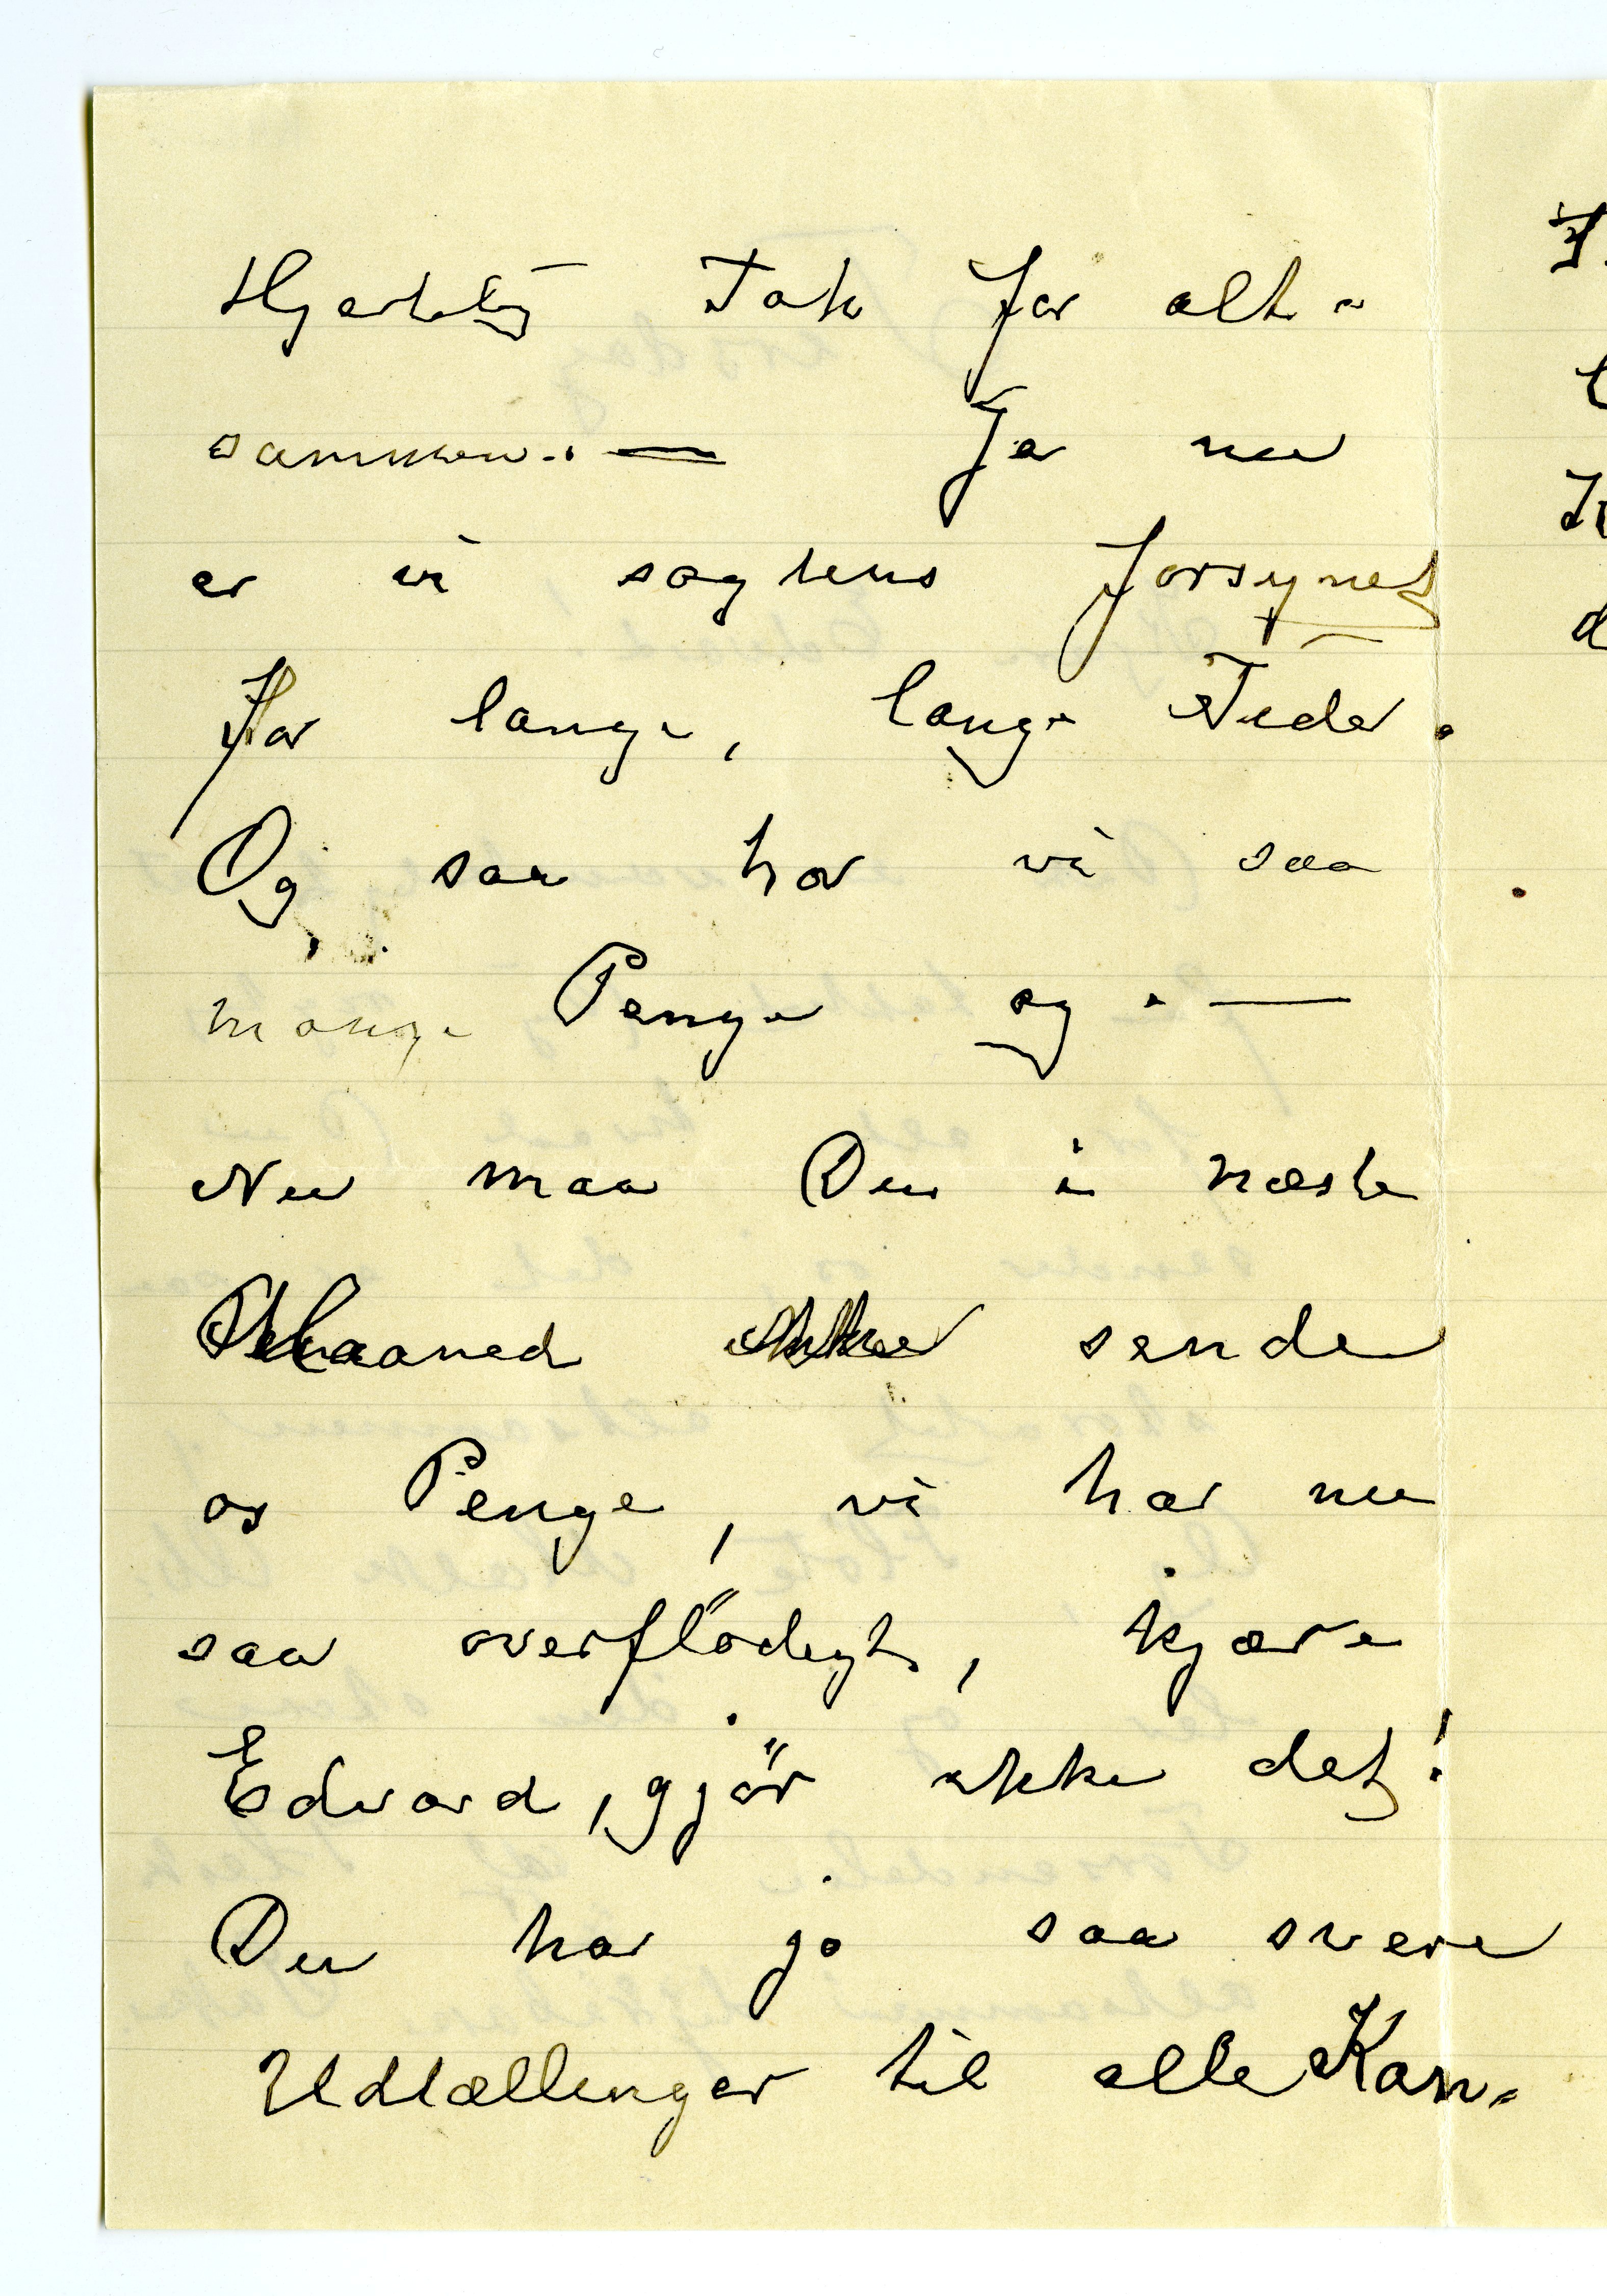 Hjertelig Tak for alt-
sammen. — Ja nu
er vi sagtens forsynet
for lange, lange Tider.
Og saa har vi saa
mange Penge og. —
Nu maa Du i næste
Maaned ikke sende
os Penge, vi har nu
saa overflödigt, kjære
Edvard, gjör ikke det!
Du har jo saa svere
Udtællinger til alle Kan-